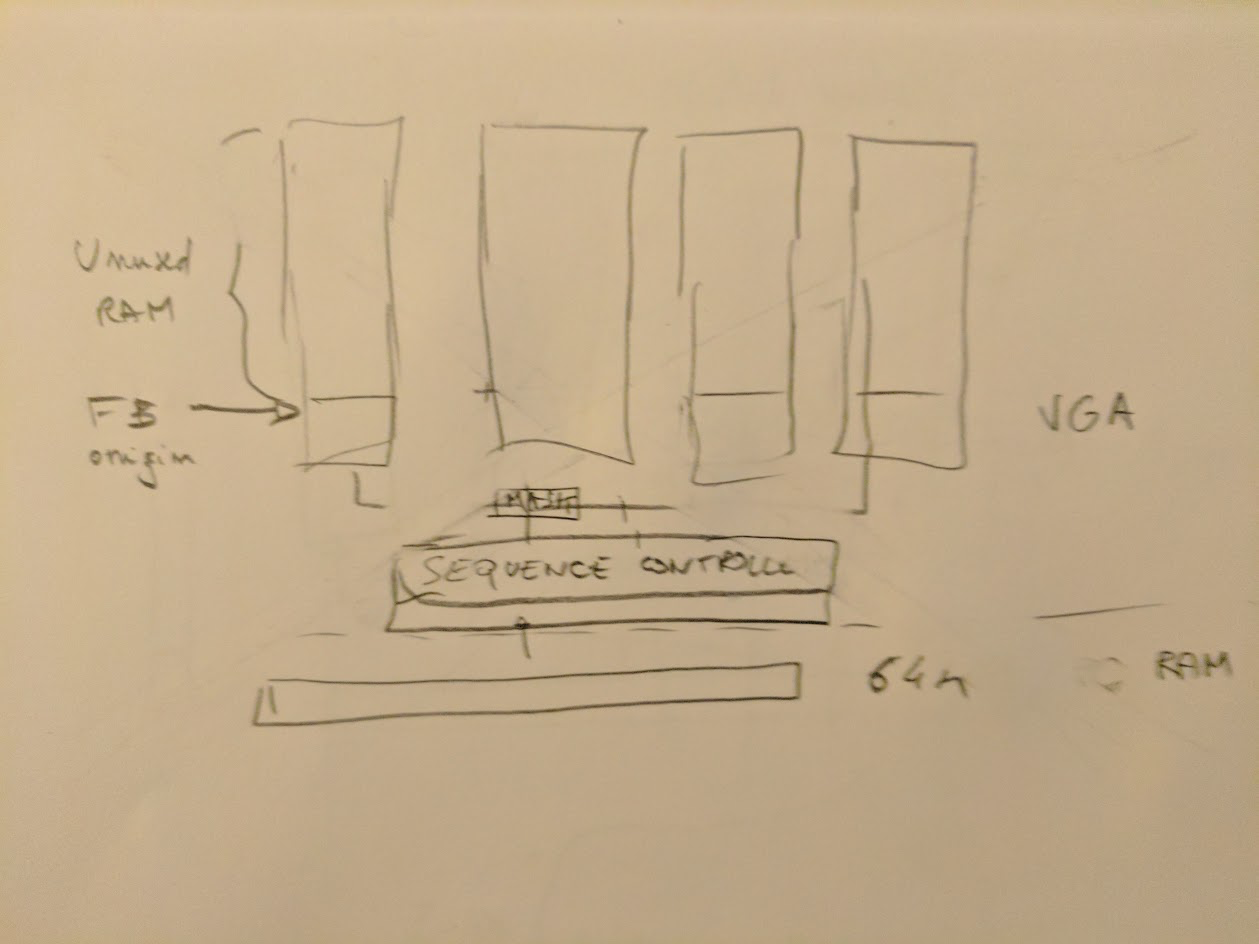 Unused
RAM
FB
origin
VGA
MASK
SEQUENCE CONTROLLE
RAM